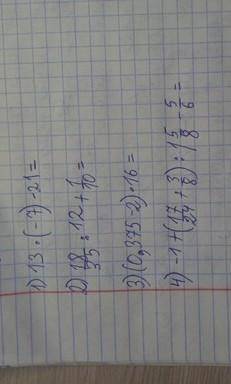 1) 13 · (-7) - 21 =
2) 18/35 : 12 + 1/10 =
3) (0,375 - 2) · 16 =
4) -1 + (17/24 + 3/8) : 1 5/8 - 5/6 =